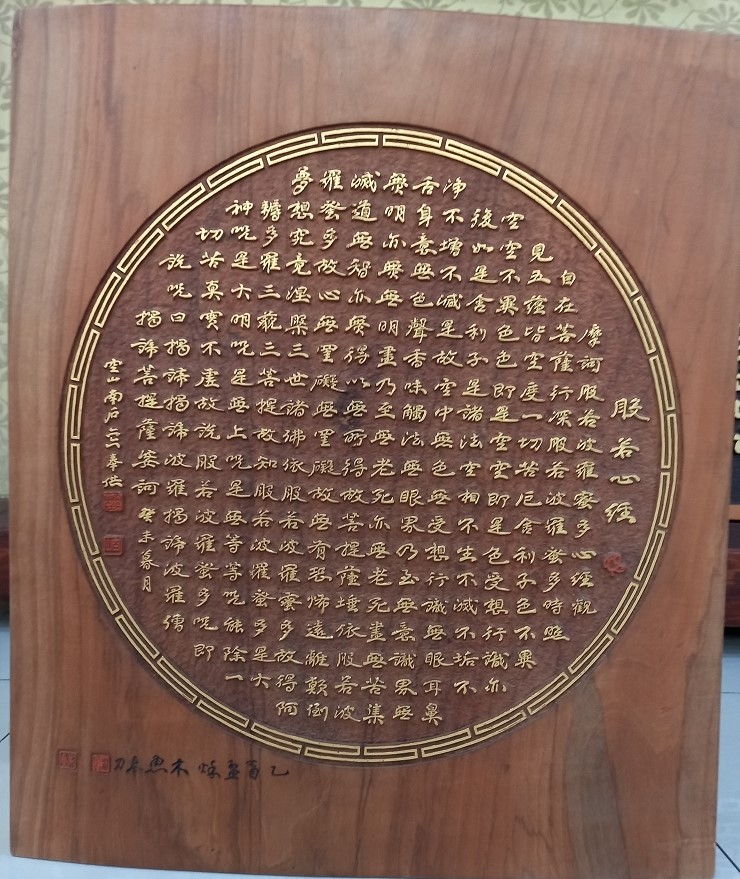 般若心經
摩訶般若波羅蜜多心經觀
自在菩薩行深般若波羅蜜多時照
見五蘊皆空度一切苦厄舍利子色不異
空空不異色色即是空空即是色受想行識亦
復如是舍利子是諸法空相不生不滅不垢不
淨不增不減是故空中無色無受想行識無眼耳鼻
舌身意無色聲香味觸法無眼界乃至無意識界無
無明亦無無明盡乃至無老死亦無老死盡無苦集
滅道無智亦無得以無所得故菩提薩埵依般若波
羅蜜多故心無罣礙無罣礙故無有恐怖遠離顛倒
夢想究竟涅槃三世諸佛依般若波羅蜜多故得阿
耨多羅三藐三菩提故知般若波羅蜜多是大
神咒是大明咒是無上咒是無等等咒能除一
切苦真實不虛故說般若波羅蜜多咒即
說咒曰揭諦揭諦波羅揭諦波羅僧
揭諦菩提薩婆訶 癸未暮月
空山南奉供
乙酉孟秋木魚奉刀